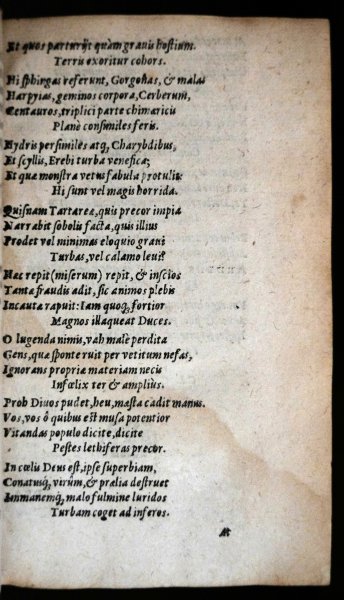 Et quos parturijt quàm gravis hostium.
Terris exoritur cohors.
Hi sphingas referunt, Gorgonas, & malas
Harpyias, geminos corpora, Cerberum,
Centauros, triplici parte chimæricis
Planè consimiles feris.
Hydris persimiles atq;, Charybdibus,
Et scyllis, Erebi turba venefica;
Et quæ monstra vetus fabula protulit:
Hi sunt vel magis horrida.
Quisnam Tartareæ, quis precor impia
Narrabit sobolis facta, quis illius
Prodet vel minimas eloquio gravi
Turbas, vel calamo levi?
Hac repit (miserum) repit, & inscios
Tanta fraudis adit, sic animos plebis
Incauta rapuit: Iam quoq;, fortior
Magnos illaqueat Duces.
O lugenda nimis, vah malè perdita
Gens, quæ sponte ruit per vetitum nefas,
Ignorans propriæ materiam necis
Infœlix ter & amplius.
Proh Divos pudet, heu, mæsta cadit manus.
Vos, vos ô quibus est musa potentior
Vitandas populo dicite, dicite
Pestes lethiferas precor.
In cœlis Deus est, ipse superbiam,
Conatusq;, virûm, & prælia destruet
Immanemq;, malo fulmine luridos
Turbam coget ad inferos.
At